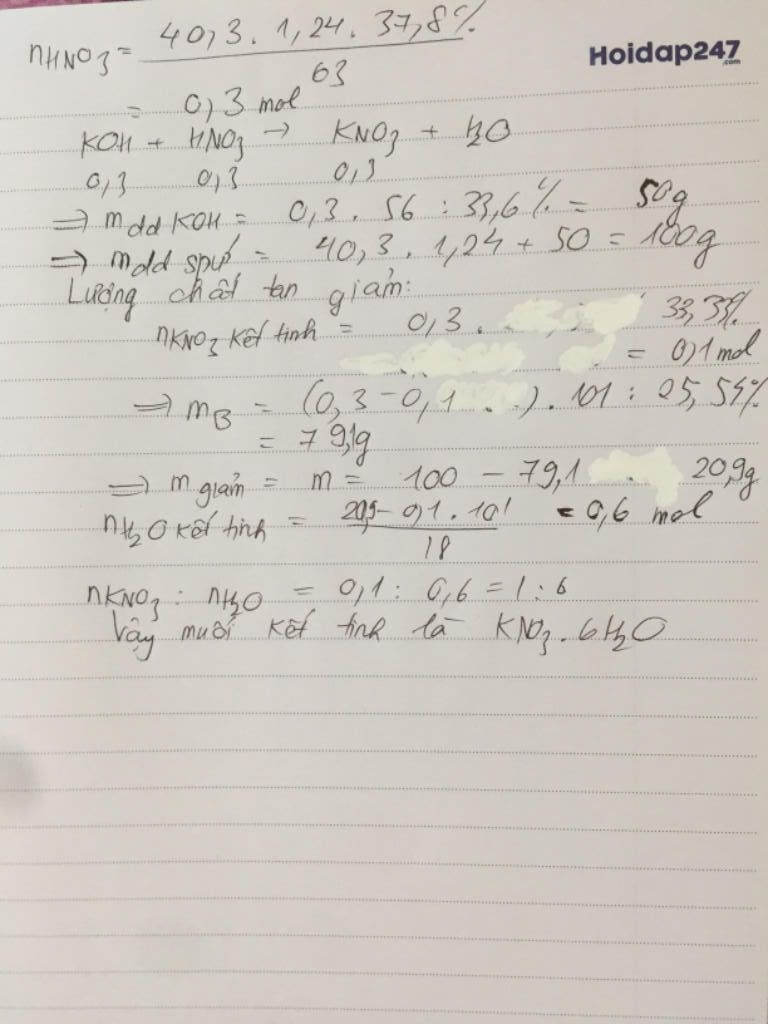 nHNO3 = 40,3 . 1,24 . 37,8% / 63
Hoidap247
.com
= 0,3 mol
KOH + HNO3 → KNO3 + H2O
0,3 0,3 0,3
=> mdd KOH = 0,3 . 56 : 33,6% = 50g
=> mdd spứ = 40,3 . 1,24 + 50 = 100g
Lượng chất tan giảm:
nKNO3 kết tinh = 0,3 . 33,33%
= 0,1 mol
=> mB = (0,3 - 0,1 . ) . 101 : 25,54%
= 79,1g
=> m giảm = m = 100 - 79,1 20,9g
nH2O kết tinh = 20,9 - 0,1 . 101 / 18 = 0,6 mol
nKNO3 : nH2O = 0,1 : 0,6 = 1 : 6
Vậy muối kết tinh là KNO3 . 6H2O